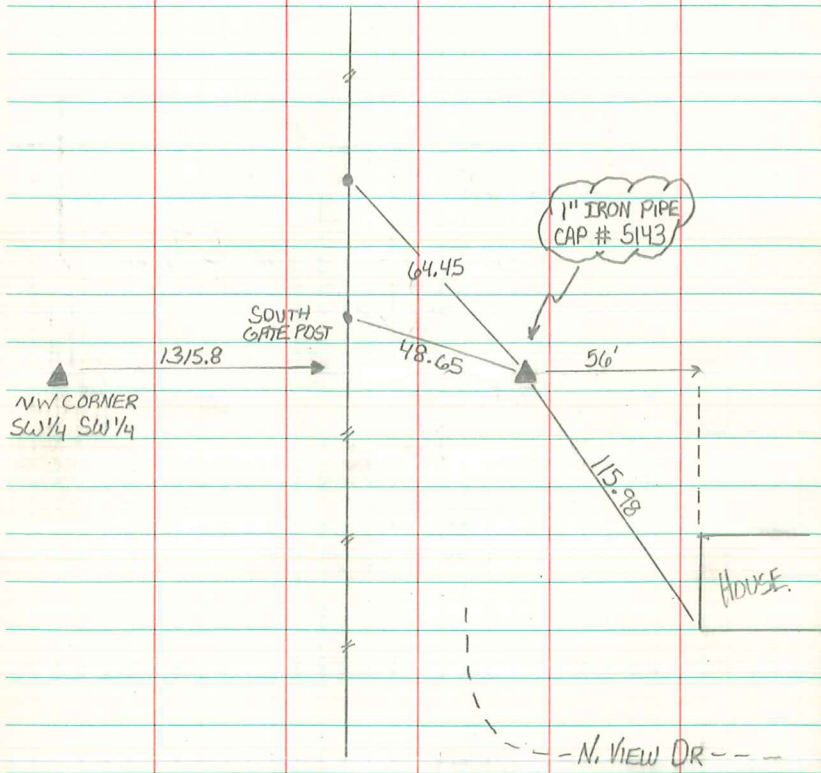 1" IRON PIPE
CAP # 5143
64.45
SOUTH
GATE POST
1315.8
48.65
56'
NW CORNER
SW 1/4 SW 1/4
115.98
HOUSE.
N. VIEW DR